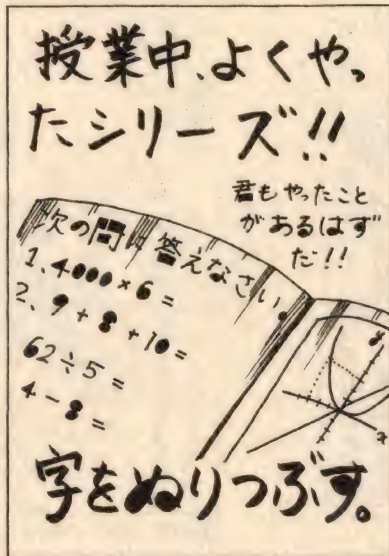 授業中、よくやっ
たシリーズ!!
君もやったこと
があるはず
だ!!
次の問に答えなさい。
1、4000×6=
2、9+8+10=
62÷5=
4-8=
y
x
字をぬりつぶす。